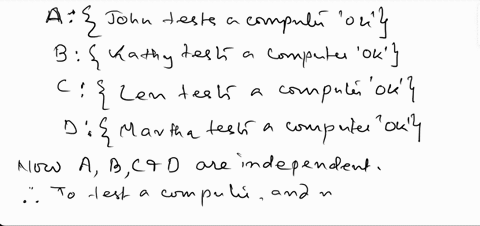 A : { John tests a computer 'ok' }
B : { Kathy tests a computer 'ok' }
C : { Len tests a computer 'ok' }
D : { Martha tests a computer 'ok' }
Now A, B, C & D are independent.
∴ To test a computer, and n